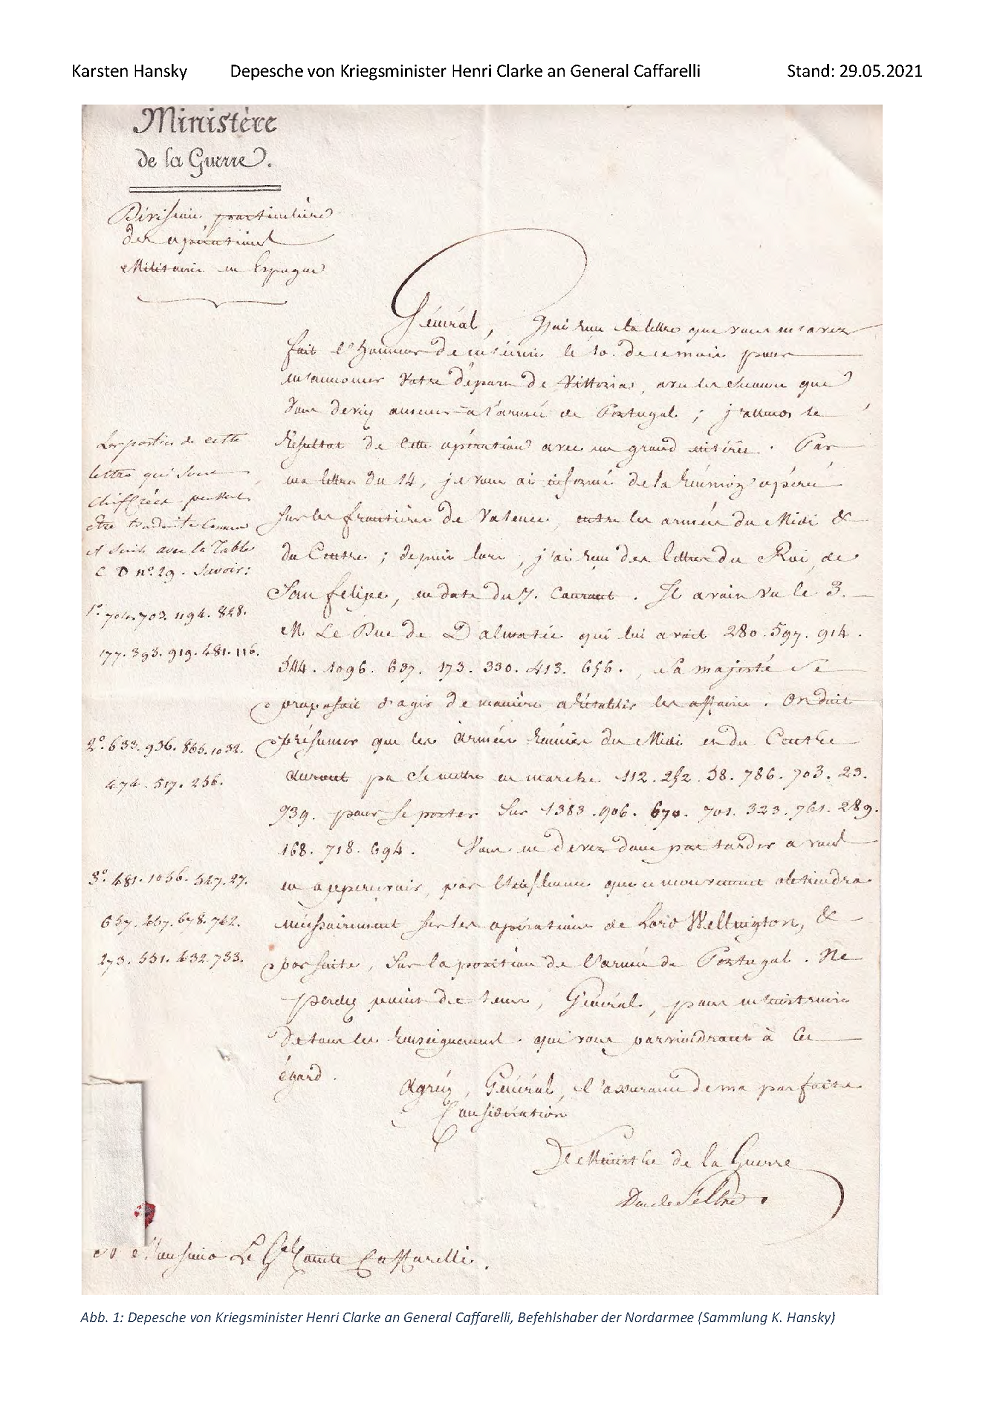 Karsten Hansky Depesche von Kriegsminister Henri Clarke an General Caffarelli Stand: 29.05.2021
Ministère
de la Guerre.
Division particulière
des opérations
Militaires en Espagne
Général, J'ai reçu la lettre que vous m'avez
fait l'honneur de m'écrire le 10. decembre pour
m'annoncer votre départ de Vittoria, avec les secours que
vous deviez amener à l'armée de Portugal ; j'attens le
résultat de cette opération avec un grand intérêt. Par
ma lettre du 14, je vous ai informé de la réunion opérée
sur les frontières de Valence, entre les armées du Midi &
du Centre ; depuis lors, j'ai reçu des lettres du Roi, de
San felipe, en date du 7. Courant. Il avait vu le 3.
M. Le Duc de Dalmatie qui lui avait 280. 597. 914.
544. 1096. 637. 173. 330. 413. 656. , Sa majesté se
proposait d'agir de manière à rétablir les affaires. On doit
présumer que les armées réunies du Midi et du Centre
auront pu se mettre en marche 112. 252. 38. 786. 703. 23.
939. pour se porter sur 1383. 906. 670. 701. 323. 761. 289.
168. 718. 694. Vous ne devez donc pas tarder à vous
en appercevoir, par l'influence que ce mouvement obtiendra
nécessairement sur les opérations de Lord Wellington, &
par suite, sur la position de l'armée de Portugal. Ne
perdez point de tems, Général, pour m'instruire
de tous les renseignements qui vous parviendront à cet
égard.
Agréez, Général, l'assurance de ma parfaite
Considération
Le Ministre de la Guerre
Duc de Feltre.
Les parties de cette
lettre qui sont
chiffrées peuvent
être traduites Comme
il suit avec la Table
C D nº. 29. Savoir:
1º. 704. 703. 1194. 828.
177. 393. 919. 481. 116.
2º. 633. 936. 865. 1032.
474. 517. 236.
3º. 481. 1056. 547. 27.
637. 467. 678. 762.
273. 531. 432. 733.
Monsieur Le Gal Comte Caffarelli.
Abb. 1: Depesche von Kriegsminister Henri Clarke an General Caffarelli, Befehlshaber der Nordarmee (Sammlung K. Hansky)